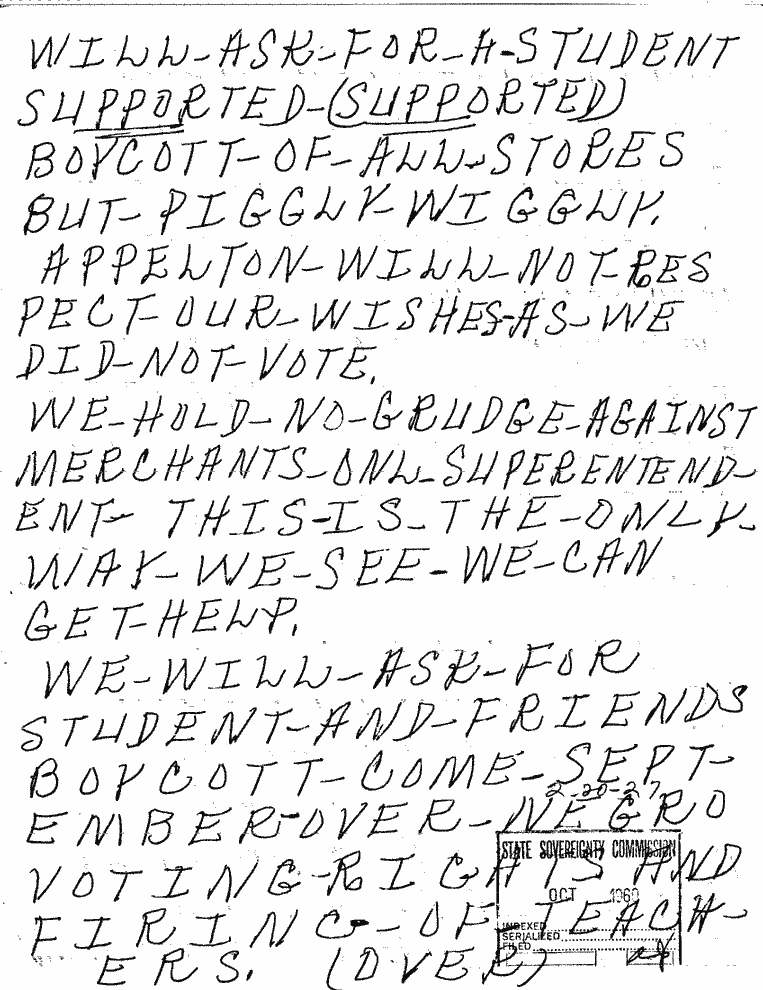 WILL-ASK-FOR-A-STUDENT
SUPPORTED-(SUPPORTED)
BOYCOTT-OF-ALL-STORES
BUT-PIGGLY-WIGGLY.
APPELTON-WILL-NOT-RES
PECT-OUR-WISHES-AS-WE
DID-NOT-VOTE.
WE-HOLD-NO-GRUDGE-AGAINST
MERCHANTS-ONL-SUPERENTEND-
ENT- THIS-IS-THE-ONLY-
WAY-WE-SEE-WE-CAN
GET-HELP.
WE-WILL-ASK-FOR
STUDENT-AND-FRIENDS
BOYCOTT-COME-SEPT-
2-20-2-7
EMBER-OVER-NEGRO
STATE SOVEREIGNTY COMMISSION
VOTING-RIGHTS AND
OCT 1960
FIRING-OF-TEACH-
INDEXED
SERIALIZED
FILED
ERS. (OVER)